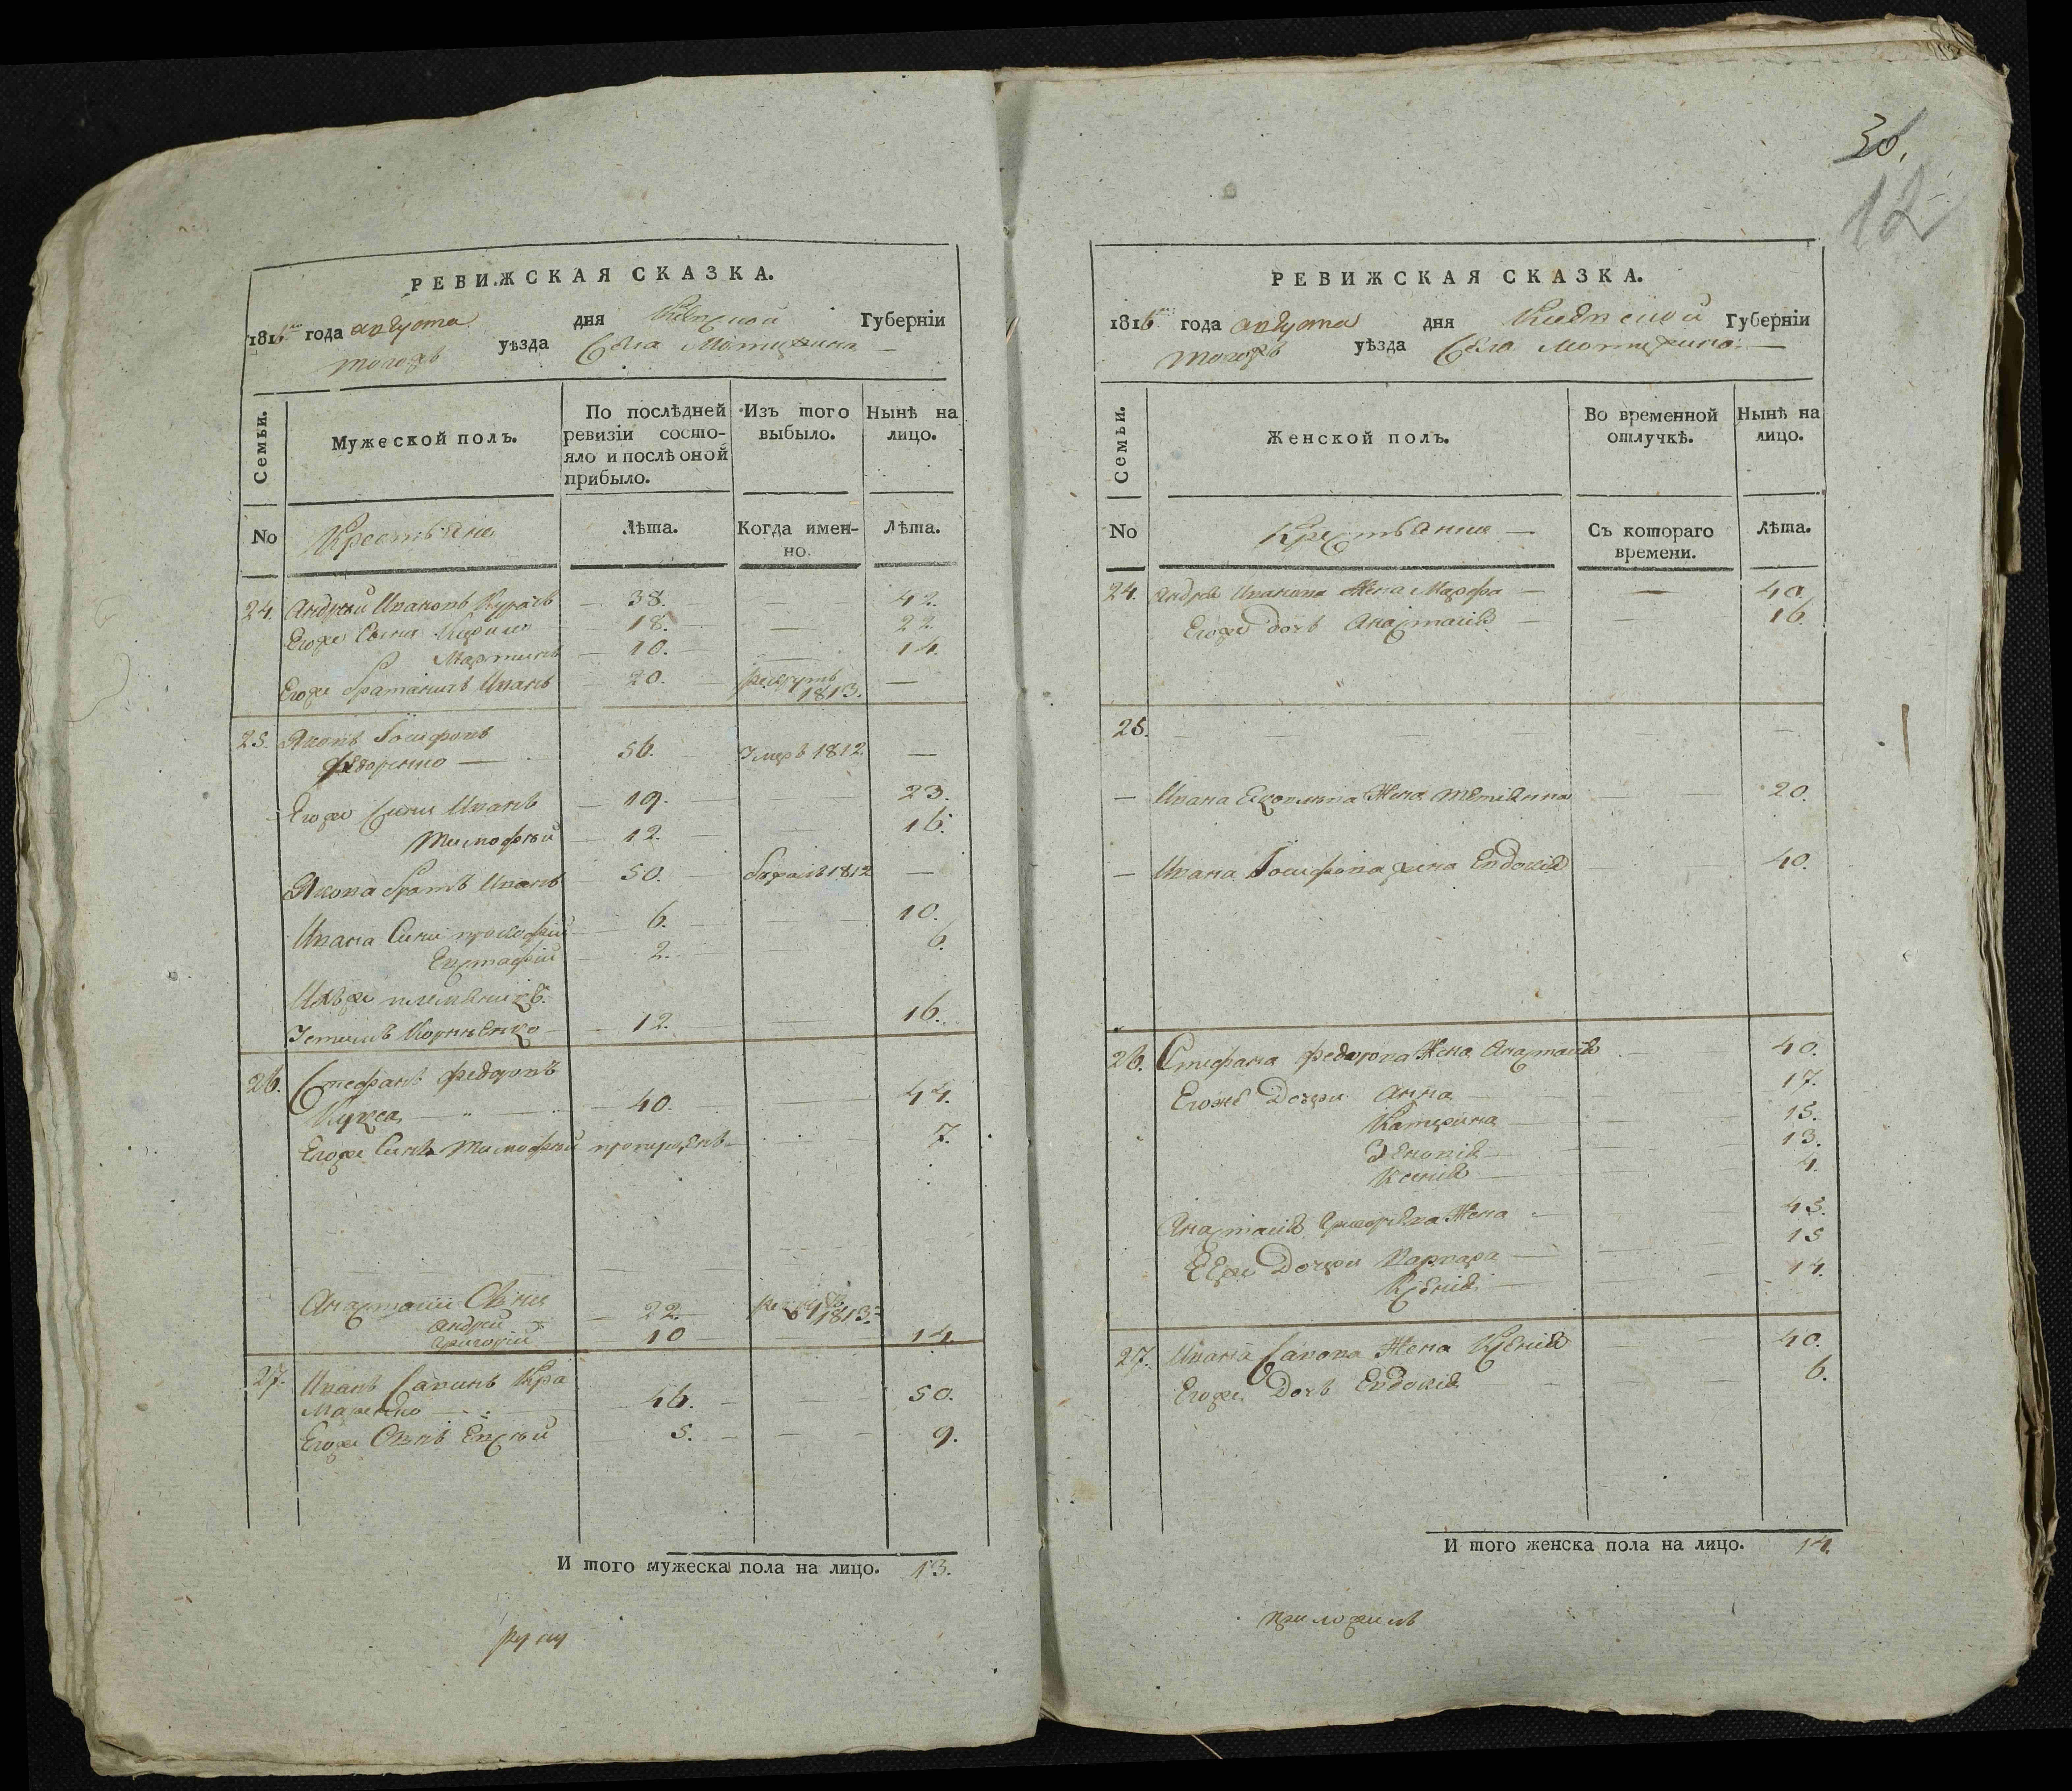 30.
12
РЕВИЖСКАЯ СКАЗКА.
1816 года августа дня Киевской Губерніи
тогожъ уѣзда Села Мотижина
Семьи.
Мужеской полъ.
По послѣдней ревизіи состо-
яло и послѣ оной
прибыло.
Изъ того
выбыло.
Нынѣ на
лицо.
No
Крестьяне
Лѣта.
Когда имен-
но.
Лѣта.
24. Андрей Ивановъ 38. — 42.
Егоже Сыни Кирило 18. — 22.
Мартинъ 10. — 14.
Егоже братаничъ Иванъ 20. рекрутъ 1813. —
25. Яковъ Іосифовъ
Федоренко — 56. Умеръ 1812. —
Егоже Сини Иванъ 19. 23.
Тимофѣй 12. 16.
Якова братъ Иванъ 50. бѣжалъ 1812 —
Ивана Сини прокофій 6. 10.
Евстафій 2. 6.
Ихъже племѣникъ
Корнѣенко 12. 16.
26. Стефанъ Федоровъ
Кукса 40. 44.
Егоже Синъ Тимофѣй пропущенъ 7.
Анастасіи Сини
Андрей 22. рекрутъ 1813.
Григорій 10 14.
27. Иванъ Савинъ Кра
маренко 46. 50.
Егоже Синъ Евсѣй 5. 9.
И того мужеска пола на лицо. 13.
руку
РЕВИЖСКАЯ СКАЗКА.
1816 года августа дня Киевской Губерніи
тогожъ уѣзда Села Мотижина
Семьи.
Женской полъ.
Во временной
отлучкѣ.
Нынѣ на
лицо.
No
Крестьянки
Съ котораго
времени.
Лѣта.
24. Андрея Иванова Жена Марфа — 40.
Егоже дочь Анастасія — 16.
25. — — — —
— Ивана Жена 20.
— Ивана Іосифова жена Евдокія 40.
26. Стефана Федорова Жена Анастасія 40.
Егожъ Дочери Анна 17.
Катерина 15.
13.
Ксенія 4.
Анастасія Жена 45.
Еяже Дочери Варвара 15
Ксенія 14.
27. Ивана Савова Жена Ксенія 40.
Егоже Дочь Евдокія 6.
И того женска пола на лицо. 14.
приложилъ